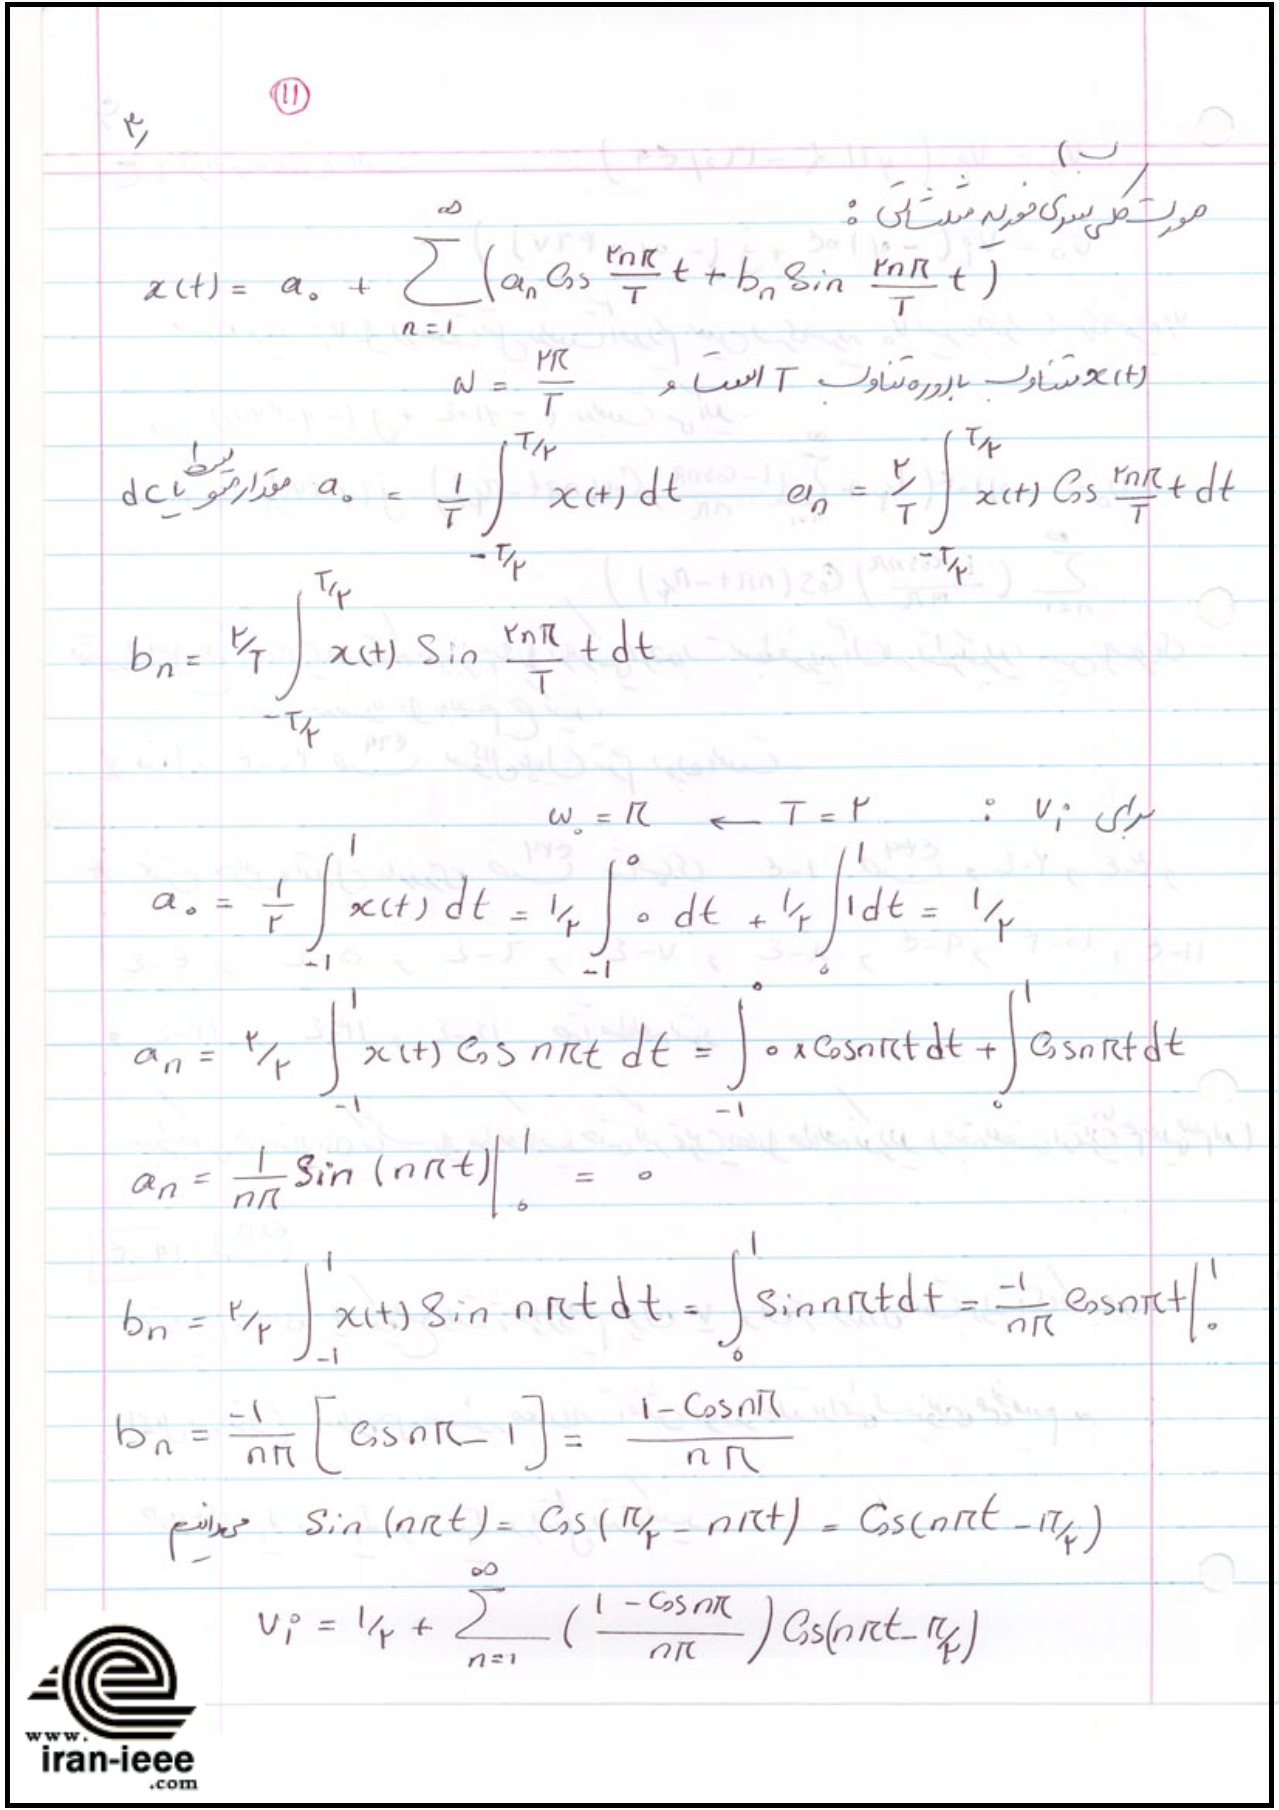 ۱۱
۳,
ب)
صورت کلی سری فوریه مثلثاتی :
x(t) = a₀ + ∑_{n=1}^{∞} (aₙ Cos ۲nπ/T t + bₙ Sin ۲nπ/T t)
x(t) متناوب با دوره تناوب T است و ω = ۲π/T
مقدار متوسط یا dc a₀ = ۱/T ∫_{-T/۲}^{T/۲} x(t) dt aₙ = ۲/T ∫_{-T/۲}^{T/۲} x(t) Cos ۲nπ/T t dt
bₙ = ۲/T ∫_{-T/۲}^{T/۲} x(t) Sin ۲nπ/T t dt
برای vᵢ : T = ۲ ← ω₀ = π
a₀ = ۱/۲ ∫_{-۱}^{۱} x(t) dt = ۱/۲ ∫_{-۱}^{۰} ۰ dt + ۱/۲ ∫_{۰}^{۱} ۱ dt = ۱/۲
aₙ = ۲/۲ ∫_{-۱}^{۱} x(t) Cos nπt dt = ∫_{-۱}^{۰} ۰ × Cos nπt dt + ∫_{۰}^{۱} Cos nπt dt
aₙ = ۱/nπ Sin (nπt) |_{۰}^{۱} = ۰
bₙ = ۲/۲ ∫_{-۱}^{۱} x(t) Sin nπt dt = ∫_{۰}^{۱} Sin nπt dt = -۱/nπ Cos nπt |_{۰}^{۱}
bₙ = -۱/nπ [Cos nπ - ۱] = (۱ - Cos nπ)/nπ
میدانیم Sin (nπt) = Cos (π/۲ - nπt) = Cos (nπt - π/۲)
vᵢ = ۱/۲ + ∑_{n=1}^{∞} ((۱ - Cos nπ)/nπ) Cos (nπt - π/۲)
www.
iran-ieee
.com